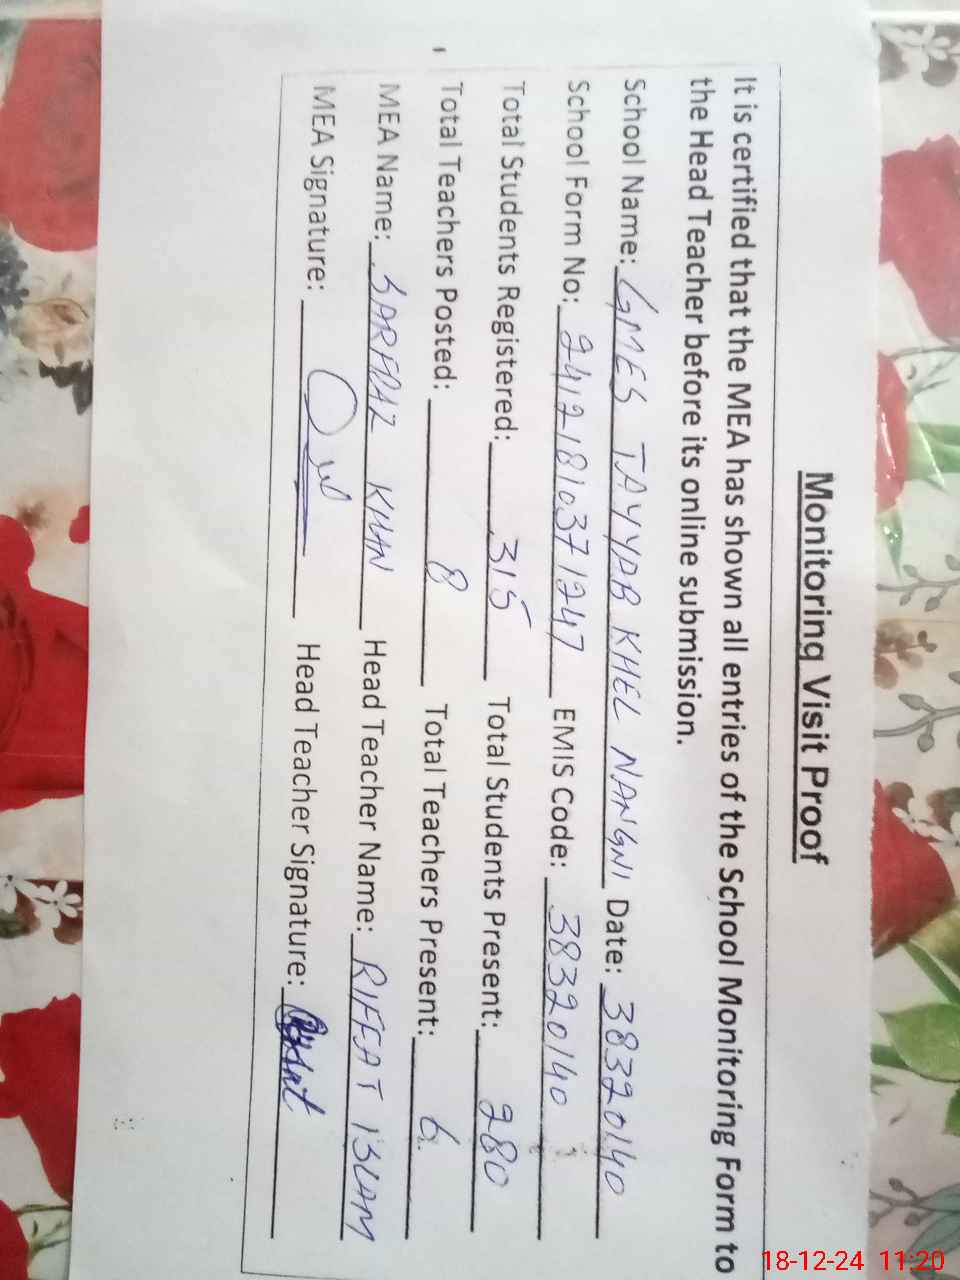 Monitoring Visit Proof
It is certified that the MEA has shown all entries of the School Monitoring Form to
the Head Teacher before its online submission.
School Name: GMES TAYYAB KHEL NANGNI Date: 38320140
School Form No: 24121810371247 EMIS Code: 38320140
Total Students Registered: 315 Total Students Present: 280
Total Teachers Posted: 8 Total Teachers Present: 6
MEA Name: SARFRAZ KHAN Head Teacher Name: RIFFAT ISLAM
MEA Signature: Head Teacher Signature:
18-12-24 11:20